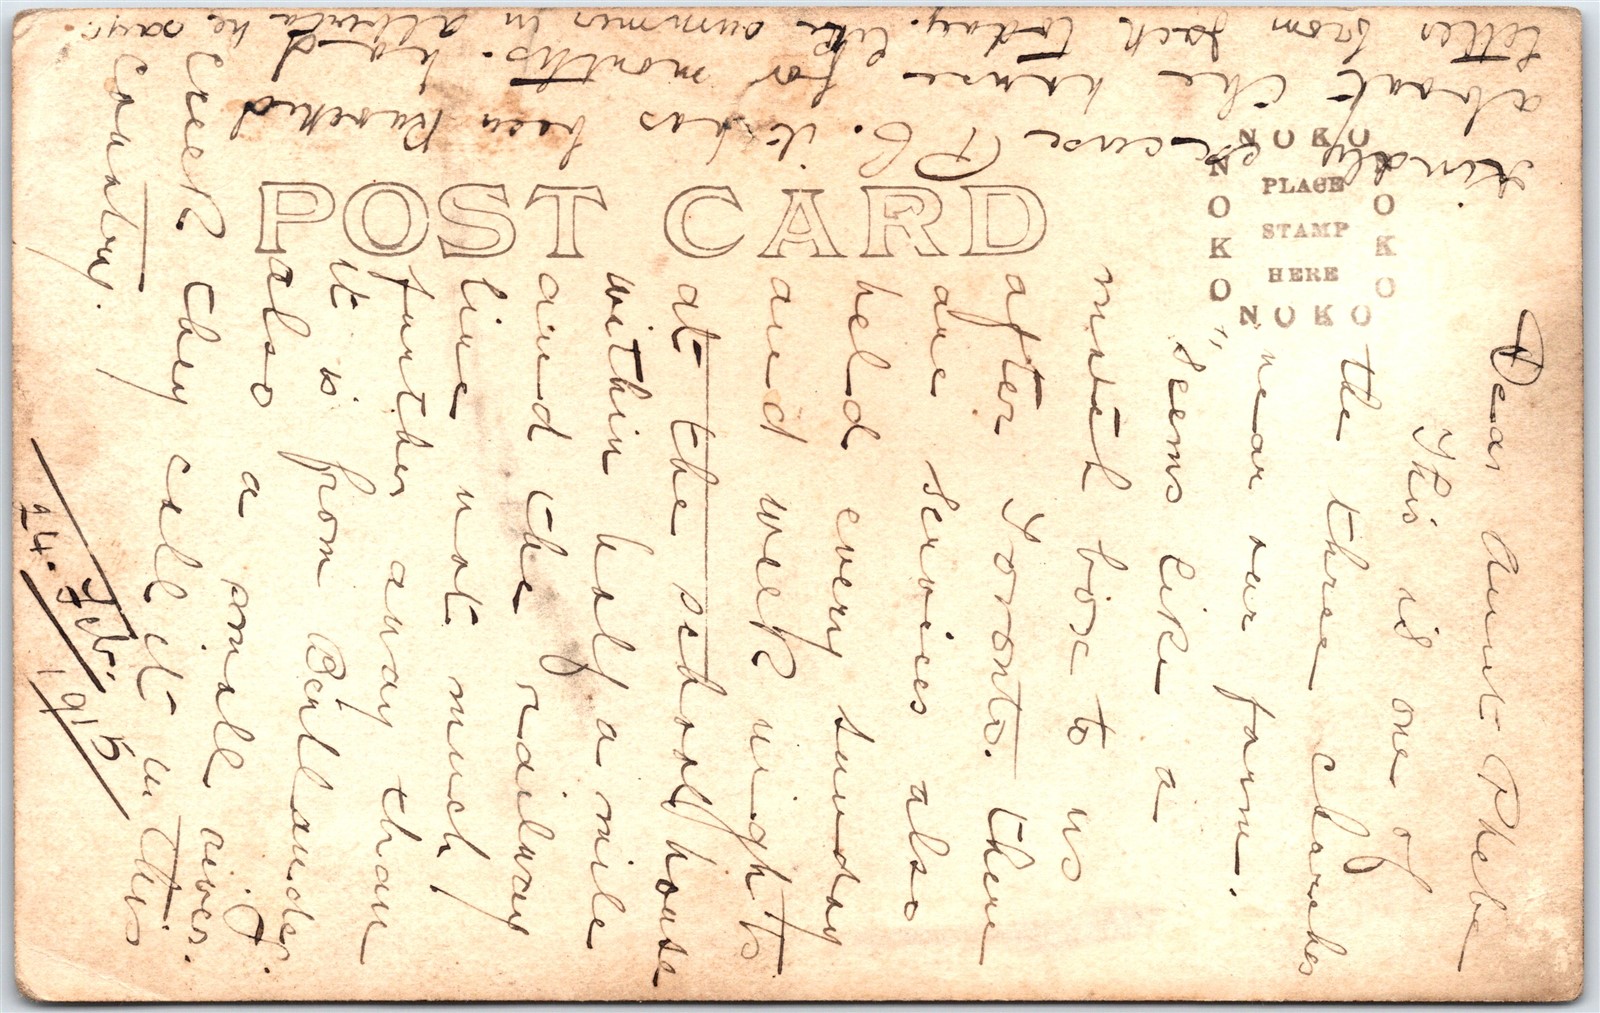 POST CARD
NOKO
NOKO
NOKO
NOKO
PLACE
STAMP
HERE
Dear Aunt Phebe
This is one of
the three churches
near our farm.
" seems like a
match box to us
after Toronto. there
are services also
held every sunday
and week nights
at the school house
within half a mile
and the railway
line not much
further away than
it is from
also a small river.
Creek they call it in this
Country.
24. Feb. 1915
Kindly excuse P.C. it has been knocked
about the house for months. had
letter from Jack today. like summer in alberta he says.